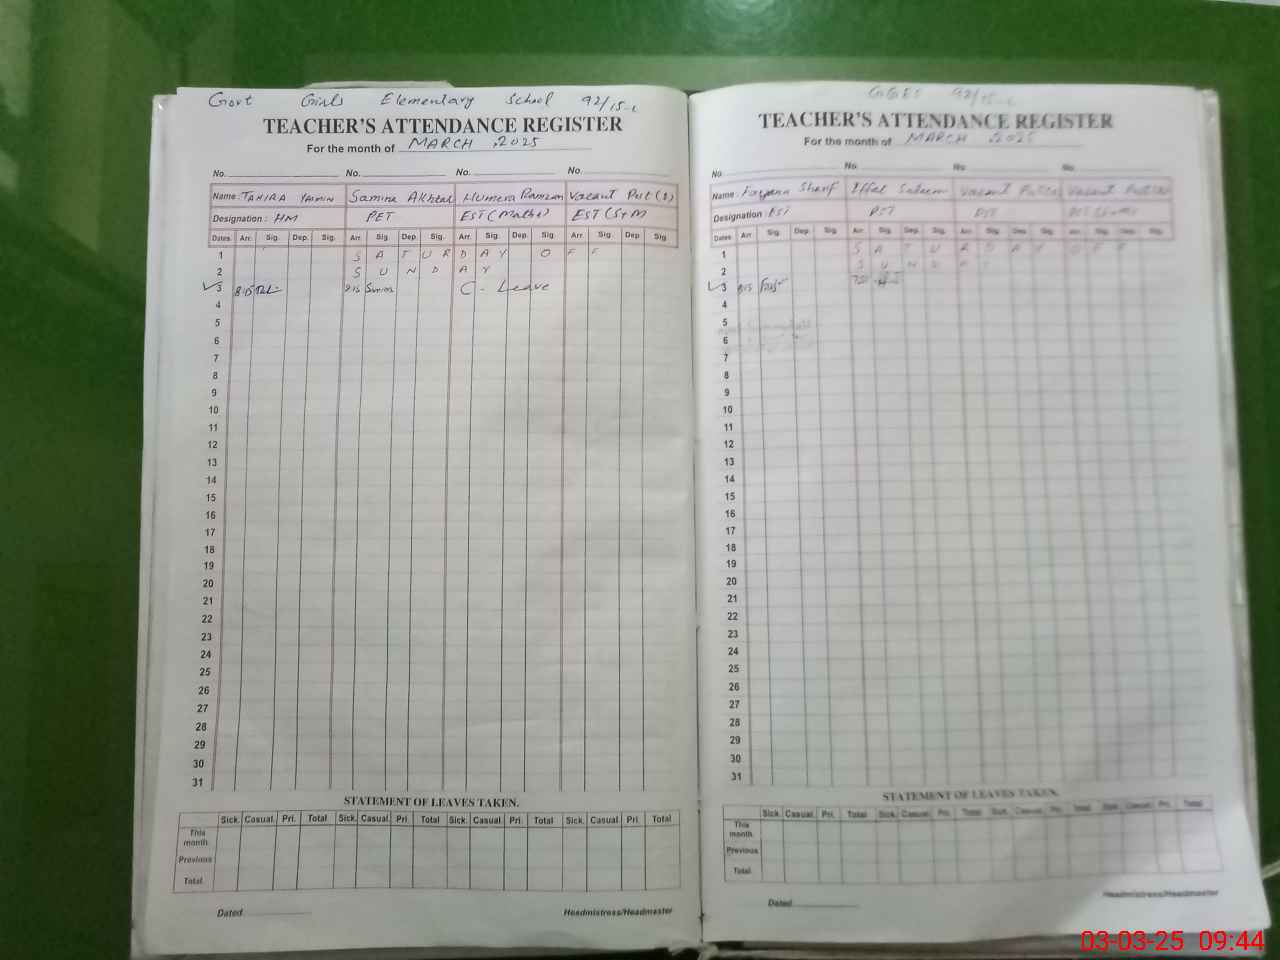 Govt Girls Elementary School 92/15-L
TEACHER'S ATTENDANCE REGISTER
For the month of MARCH ,2025
No. No. No. No.
Name : TAHIRA YASMIN Samina Akhtar Humera Ramzan Vacant Post (S)
Designation : HM PET EST (Maths) EST (S+M
Dates Arr. Sig. Dep. Sig. Arr. Sig. Dep. Sig. Arr. Sig. Dep. Sig. Arr. Sig. Dep Sig.
1 S A T U R D A Y O F F
2 S U N D A Y
3 8:15 8:15 Samina C - Leave
4
5
6
7
8
9
10
11
12
13
14
15
16
17
18
19
20
21
22
23
24
25
26
27
28
29
30
31
STATEMENT OF LEAVES TAKEN.
Sick. Casual. Pri. Total Sick. Casual. Pri. Total Sick. Casual. Pri. Total Sick. Casual. Pri. Total
This month.
Previous
Total.
Dated
Headmistress/Headmaster
GGES 92/15-L
TEACHER'S ATTENDANCE REGISTER
For the month of MARCH ,2025
No. No. No. No.
Name : Farzana Sharif Iffat Saleem Vacant Vacant
Designation : EST PST PST
Dates Arr. Sig. Dep. Sig. Arr. Sig. Dep. Sig. Arr. Sig. Dep. Sig. Arr. Sig. Dep. Sig.
1 S A T U R D A Y O F F
2 S U N D A Y
3 8:15
4
5
6
7
8
9
10
11
12
13
14
15
16
17
18
19
20
21
22
23
24
25
26
27
28
29
30
31
STATEMENT OF LEAVES TAKEN.
Sick. Casual. Pri. Total Sick. Casual. Pri. Total Sick. Casual. Pri. Total Sick. Casual. Pri. Total
This month.
Previous
Total.
Dated
Headmistress/Headmaster
03-03-25 09:44